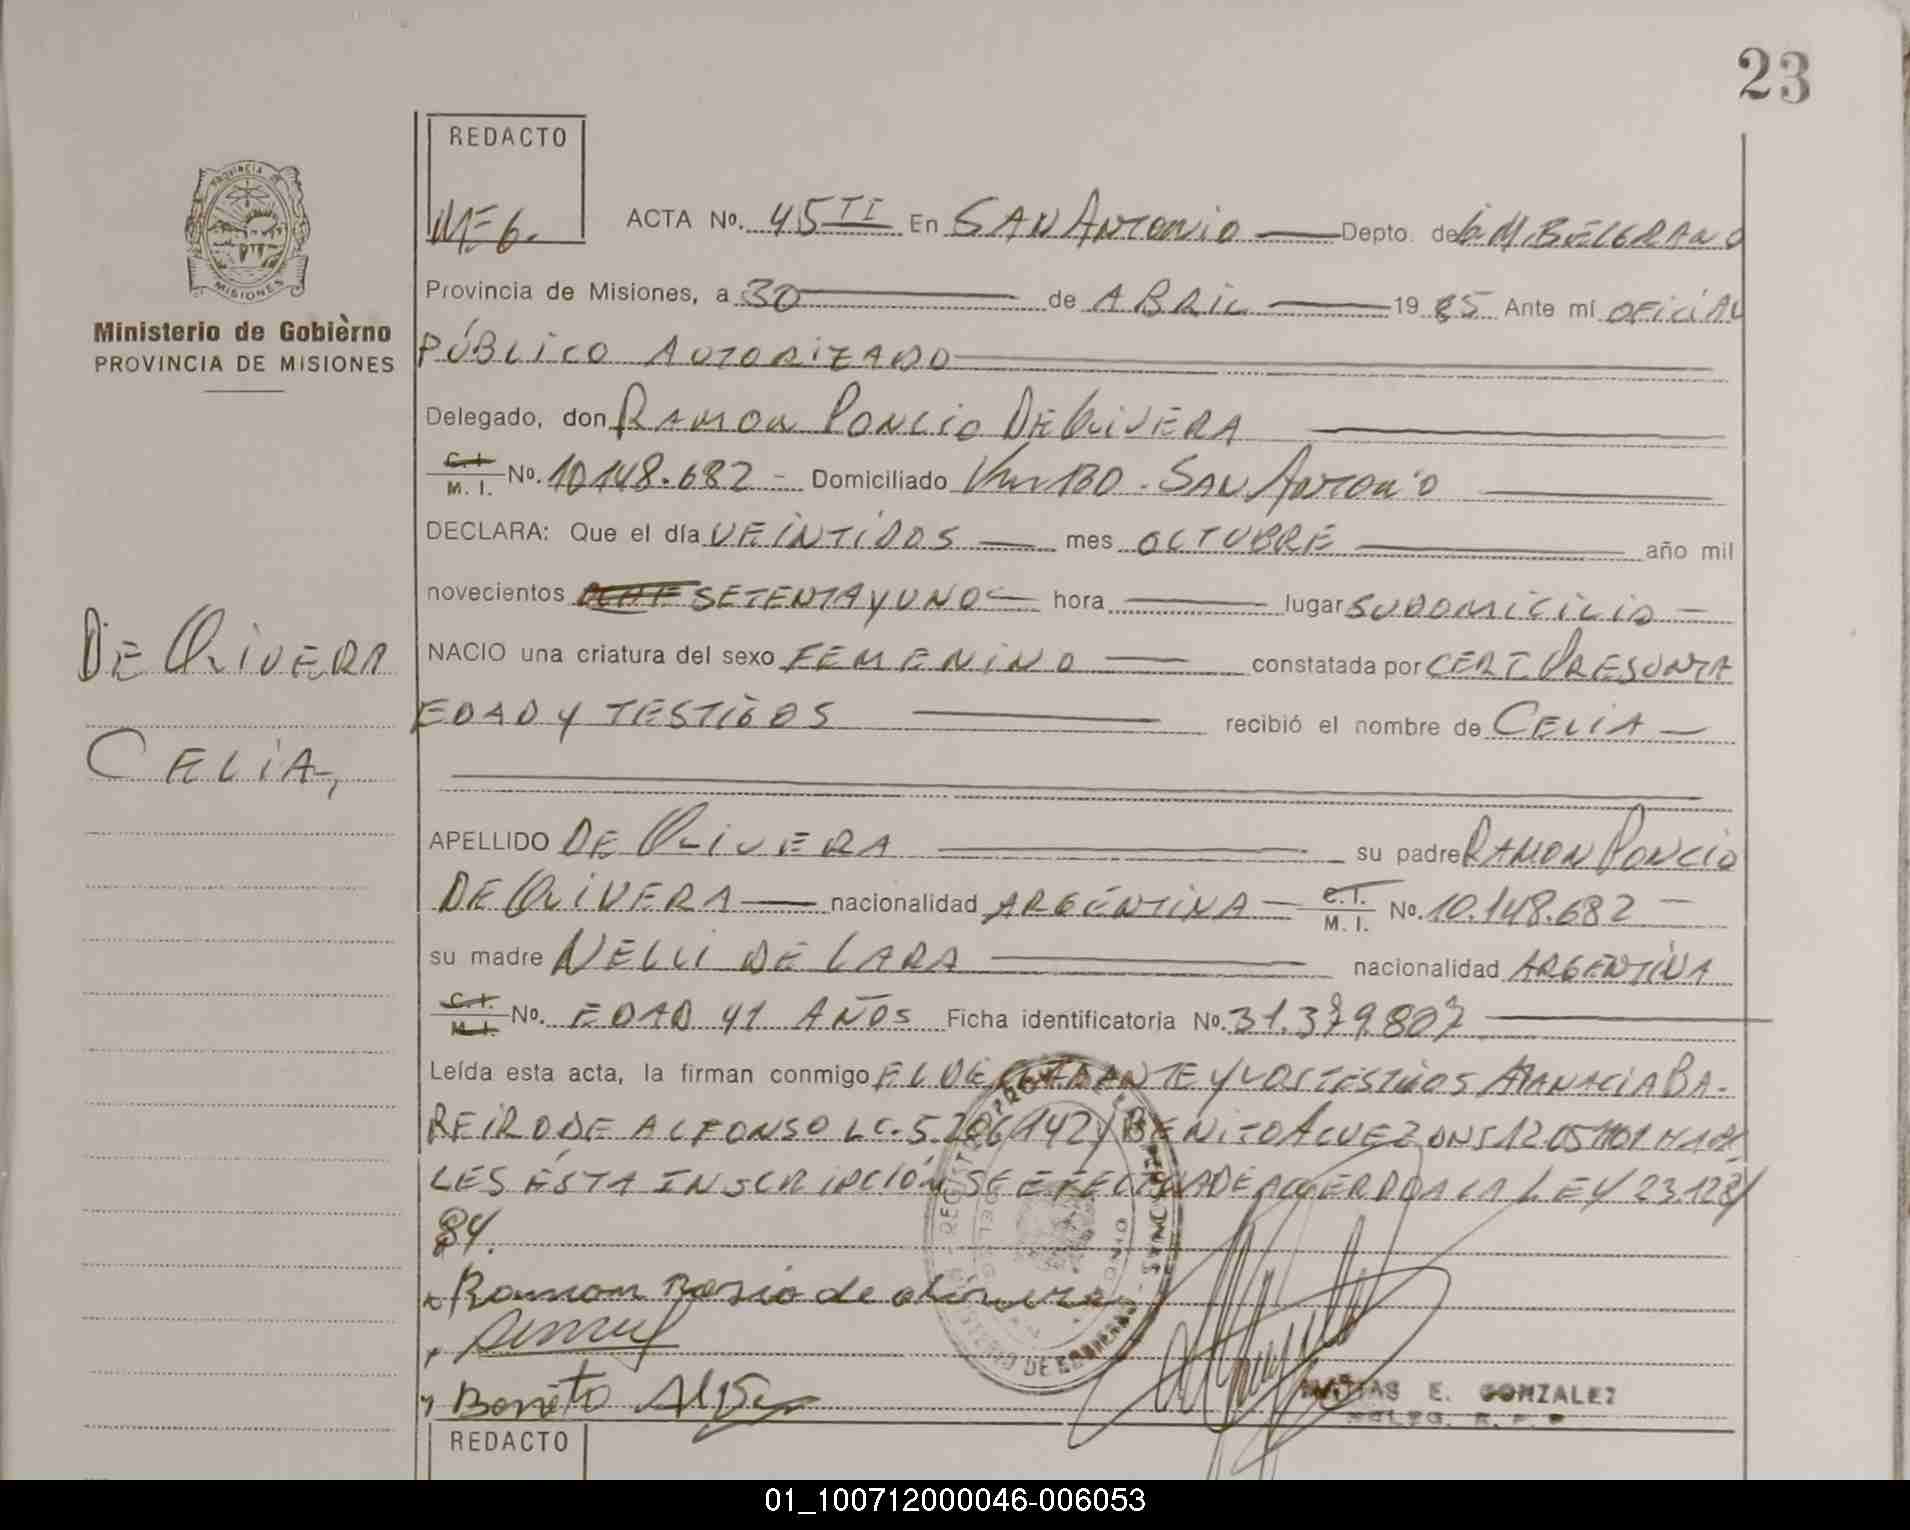 23
REDACTO
ME G.
PROVINCIA DE
MISIONES
Ministerio de Gobierno
PROVINCIA DE MISIONES
ACTA No. 45 TI En SAN ANTONIO Depto. de G.M. BELGRANO
Provincia de Misiones, a 30 de ABRIL 1985 Ante mí OFICIAL
PÚBLICO AUTORIZADO
Delegado, don RAMON PONCIO DE OLIVERA
C.I. M.I. No. 10148.682 - Domiciliado Km 130 - SAN ANTONIO
DECLARA: Que el día VEINTIDOS mes OCTUBRE año mil
novecientos SETENTA Y UNO hora lugar SU DOMICILIO
NACIO una criatura del sexo FEMENINO constatada por CERT. PRESUNTA
EDAD Y TESTIGOS recibió el nombre de CELIA
DE OLIVERA
CELIA,
APELLIDO DE OLIVERA su padre RAMON PONCIO
DE OLIVERA nacionalidad ARGENTINA C.I. M.I. No. 10.148.682
su madre NELLI DE LARA nacionalidad ARGENTINA
C.I. M.I. No. EDAD 41 AÑOS Ficha identificatoria No. 31.379.807
Leída esta acta, la firman conmigo EL DECLARANTE Y LOS TESTIGOS ATANACIA BA-
REIRO DE ALFONSO LC. 5.206.142 Y BENITO ALVEZ DNI 12051101 HABI
LES ESTA INSCRIPCIÓN SE EFECTUA DE ACUERDO A LA LEY 23.128/
84.
Ramon Ponsio de olivera
Benito Alves
MATIAS E. GONZALEZ
REDACTO
01_100712000046-006053